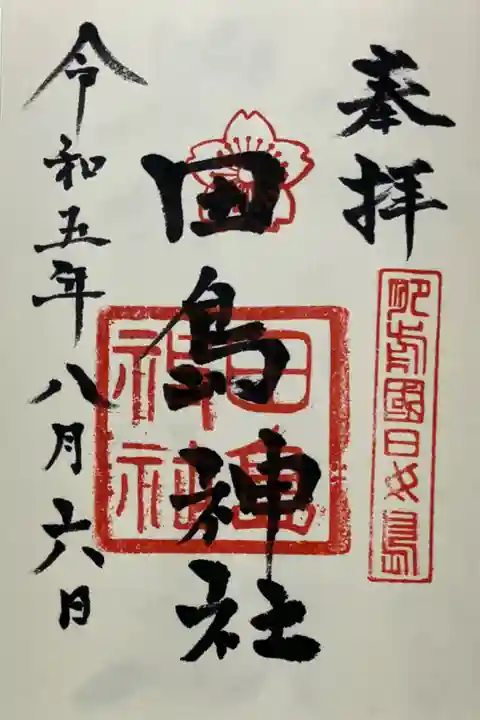 奉拝
肥前國田島
田島神社
田島神社
令和五年八月六日